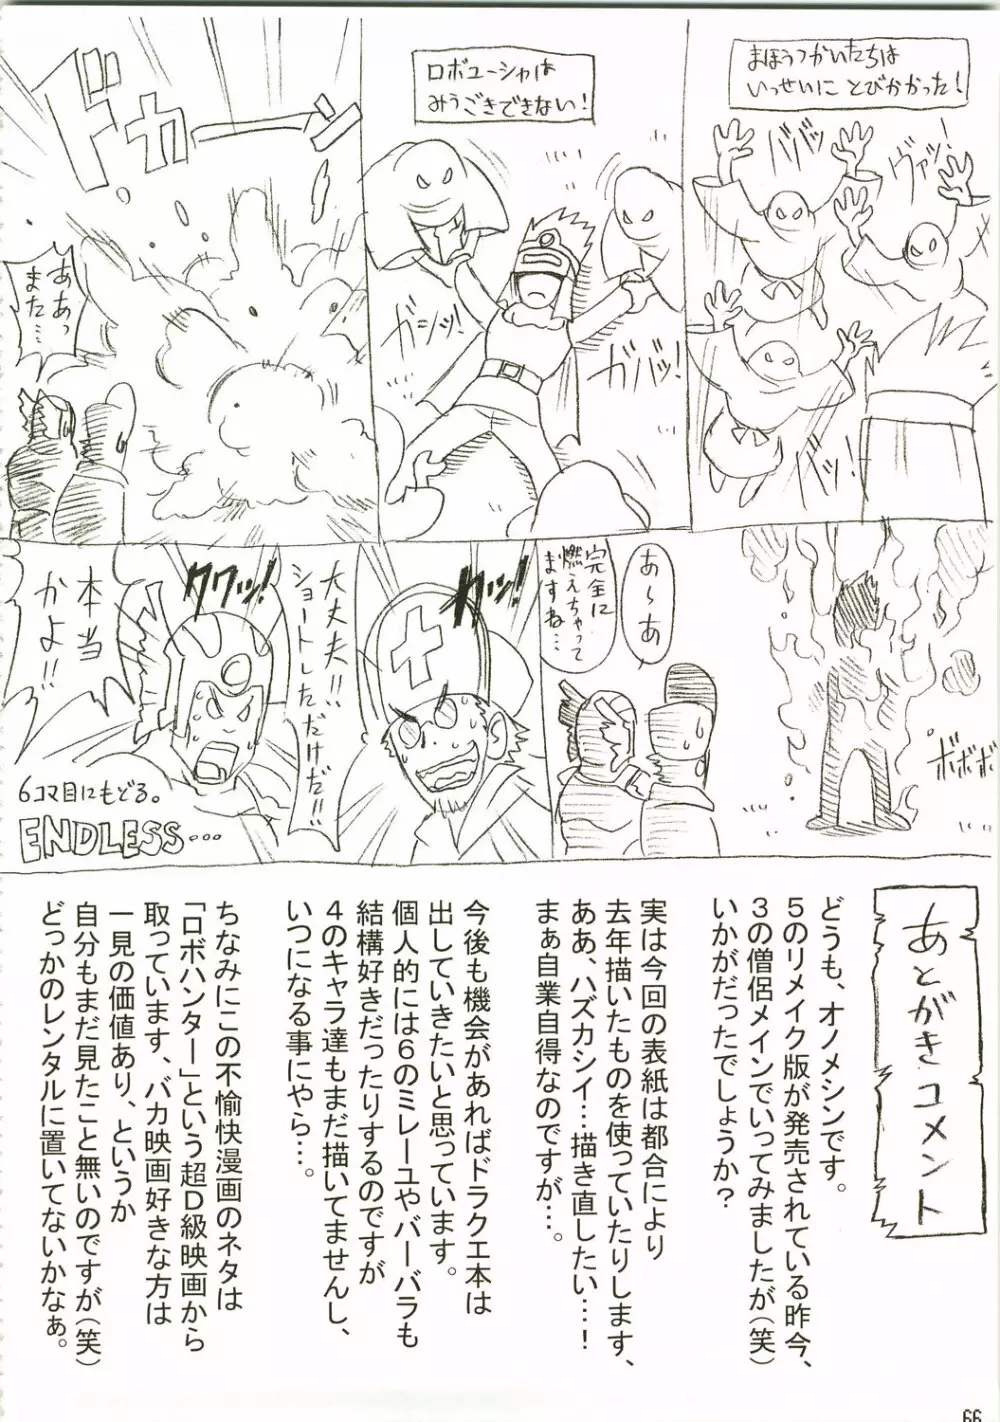 まほうつかいたちは
いっせいに とびかかった!
ババッ
ヴァッ!
バッ!
ロボユーシャは
みうごきできない!
ガシッ!
ガバッ!
ドカーーン
ああっ
また…
ボボボ
あ〜あ
完全に
燃えちゃって
ますね…
クワッ!
大丈夫!!
ショートしただけだ!!
クワッ!
本当
かよ!!
6コマ目にもどる。
ENDLESS…
あとがきコメント
どうも、オノメシンです。
5のリメイク版が発売されている昨今、
3の僧侶メインでいってみましたが(笑)
いかがだったでしょうか?
実は今回の表紙は都合により
去年描いたものを使っていたりします、
ああ、ハズカシイ…描き直したい…!
まぁ自業自得なのですが…。
今後も機会があればドラクエ本は
出していきたいと思っています。
個人的には6のミレーユやバーバラも
結構好きだったりするのですが
4のキャラ達もまだ描いてませんし、
いつになる事にやら…。
ちなみにこの不愉快漫画のネタは
「ロボハンター」という超D級映画から
取っています、バカ映画好きな方は
一見の価値あり、というか
自分もまだ見たこと無いのですが(笑)
どっかのレンタルに置いてないかなぁ。
66